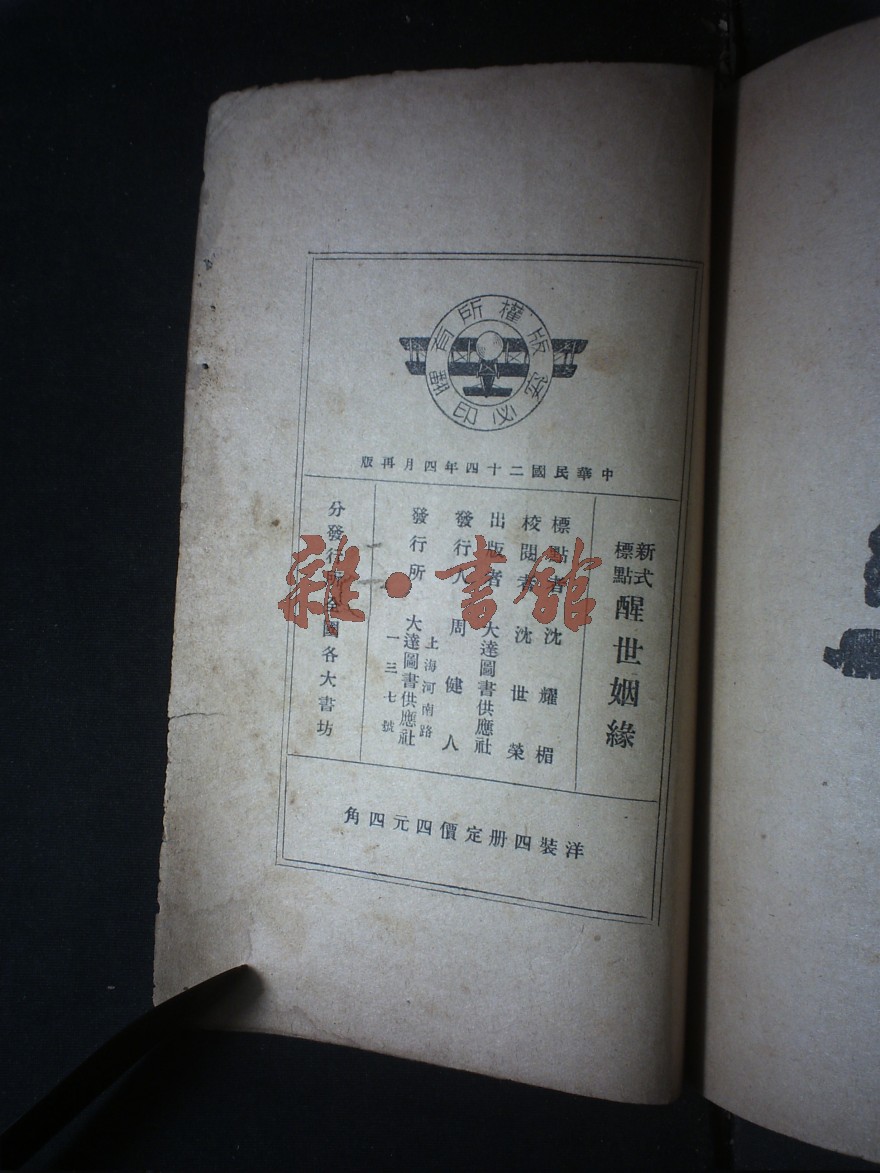 版權所有
翻印必究
中華民國二十四年四月再版
新式
標點
醒世姻緣
標點者 沈耀楣
校閱者 沈世榮
出版者 大達圖書供應社
發行人 周健人
發行所 上海河南路
大達圖書供應社
一三七號
分發行所全國各大書坊
洋裝四册定價四元四角
雜·書館